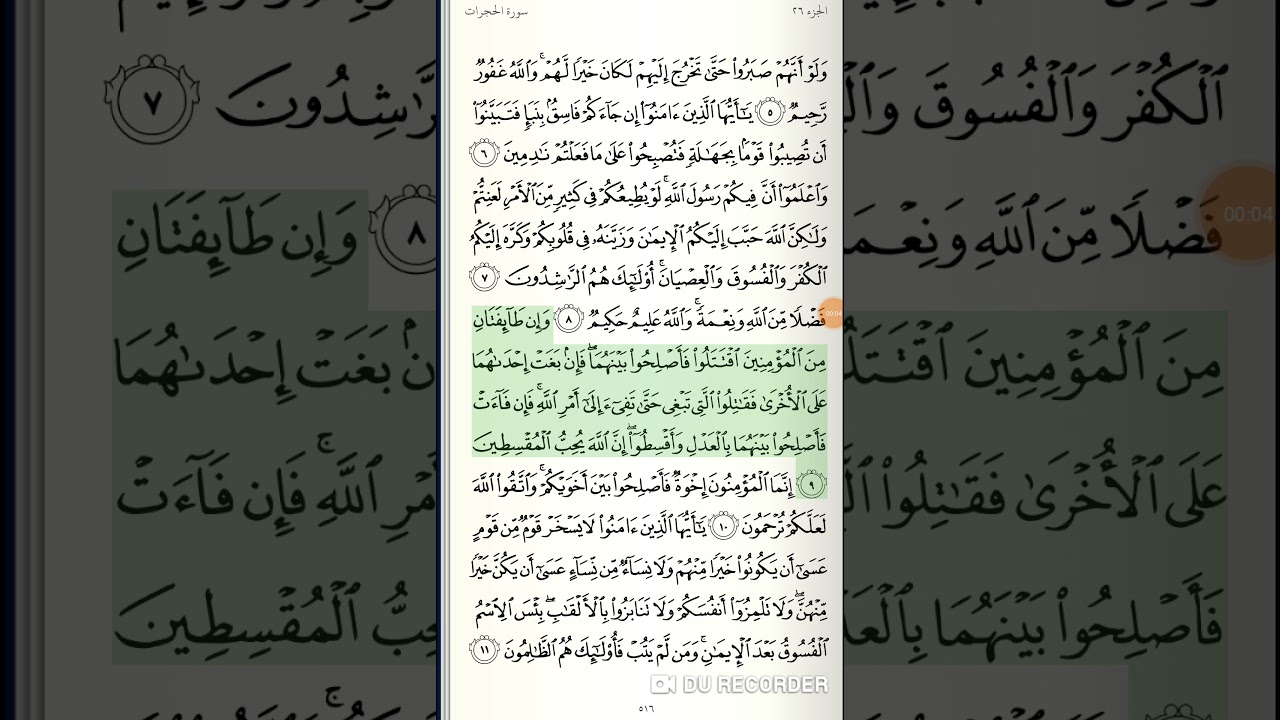 الجزء ٢٦
سورة الحجرات
وَلَوْ أَنَّهُمْ صَبَرُوا۟ حَتَّىٰ تَخْرُجَ إِلَيْهِمْ لَكَانَ خَيْرًا لَّهُمْ ۚ وَٱللَّهُ غَفُورٌ
رَّحِيمٌ ٥ يَـٰٓأَيُّهَا ٱلَّذِينَ ءَامَنُوٓا۟ إِن جَآءَكُمْ فَاسِقٌۢ بِنَبَإٍ فَتَبَيَّنُوٓا۟
أَن تُصِيبُوا۟ قَوْمًۢا بِجَهَـٰلَةٍ فَتُصْبِحُوا۟ عَلَىٰ مَا فَعَلْتُمْ نَـٰدِمِينَ ٦
وَٱعْلَمُوٓا۟ أَنَّ فِيكُمْ رَسُولَ ٱللَّهِ ۚ لَوْ يُطِيعُكُمْ فِى كَثِيرٍ مِّنَ ٱلْأَمْرِ لَعَنِتُّمْ
وَلَـٰكِنَّ ٱللَّهَ حَبَّبَ إِلَيْكُمُ ٱلْإِيمَـٰنَ وَزَيَّنَهُۥ فِى قُلُوبِكُمْ وَكَرَّهَ إِلَيْكُمُ
ٱلْكُفْرَ وَٱلْفُسُوقَ وَٱلْعِصْيَانَ ۚ أُو۟لَـٰٓئِكَ هُمُ ٱلرَّٰشِدُونَ ٧
فَضْلًا مِّنَ ٱللَّهِ وَنِعْمَةً ۚ وَٱللَّهُ عَلِيمٌ حَكِيمٌ ٨ وَإِن طَآئِفَتَانِ
مِنَ ٱلْمُؤْمِنِينَ ٱقْتَتَلُوا۟ فَأَصْلِحُوا۟ بَيْنَهُمَا ۖ فَإِنۢ بَغَتْ إِحْدَىٰهُمَا
عَلَى ٱلْأُخْرَىٰ فَقَـٰتِلُوا۟ ٱلَّتِى تَبْغِى حَتَّىٰ تَفِىٓءَ إِلَىٰٓ أَمْرِ ٱللَّهِ ۚ فَإِن فَآءَتْ
فَأَصْلِحُوا۟ بَيْنَهُمَا بِٱلْعَدْلِ وَأَقْسِطُوٓا۟ ۖ إِنَّ ٱللَّهَ يُحِبُّ ٱلْمُقْسِطِينَ
٩ إِنَّمَا ٱلْمُؤْمِنُونَ إِخْوَةٌ فَأَصْلِحُوا۟ بَيْنَ أَخَوَيْكُمْ ۚ وَٱتَّقُوا۟ ٱللَّهَ
لَعَلَّكُمْ تُرْحَمُونَ ١٠ يَـٰٓأَيُّهَا ٱلَّذِينَ ءَامَنُوا۟ لَا يَسْخَرْ قَوْمٌ مِّن قَوْمٍ
عَسَىٰٓ أَن يَكُونُوا۟ خَيْرًا مِّنْهُمْ وَلَا نِسَآءٌ مِّن نِّسَآءٍ عَسَىٰٓ أَن يَكُنَّ خَيْرًا
مِّنْهُنَّ ۖ وَلَا تَلْمِزُوٓا۟ أَنفُسَكُمْ وَلَا تَنَابَزُوا۟ بِٱلْأَلْقَـٰبِ ۖ بِئْسَ ٱلِٱسْمُ
ٱلْفُسُوقُ بَعْدَ ٱلْإِيمَـٰنِ ۚ وَمَن لَّمْ يَتُبْ فَأُو۟لَـٰٓئِكَ هُمُ ٱلظَّـٰلِمُونَ ١١
DU RECORDER
٥١٦
00:04
00:04
ٱلْكُفْرَ وَٱلْفُسُوقَ
رَّٰشِدُونَ ٧
فَضْلًا مِّنَ ٱللَّهِ
٨ وَإِن طَآئِفَتَانِ
مِنَ ٱلْمُؤْمِنِينَ
بَغَتْ إِحْدَىٰهُمَا
عَلَى ٱلْأُخْرَىٰ فَقَـٰتِلُوا۟
ٱللَّهِ ۚ فَإِن فَآءَتْ
فَأَصْلِحُوا۟ بَيْنَهُمَا
ٱلْمُقْسِطِينَ